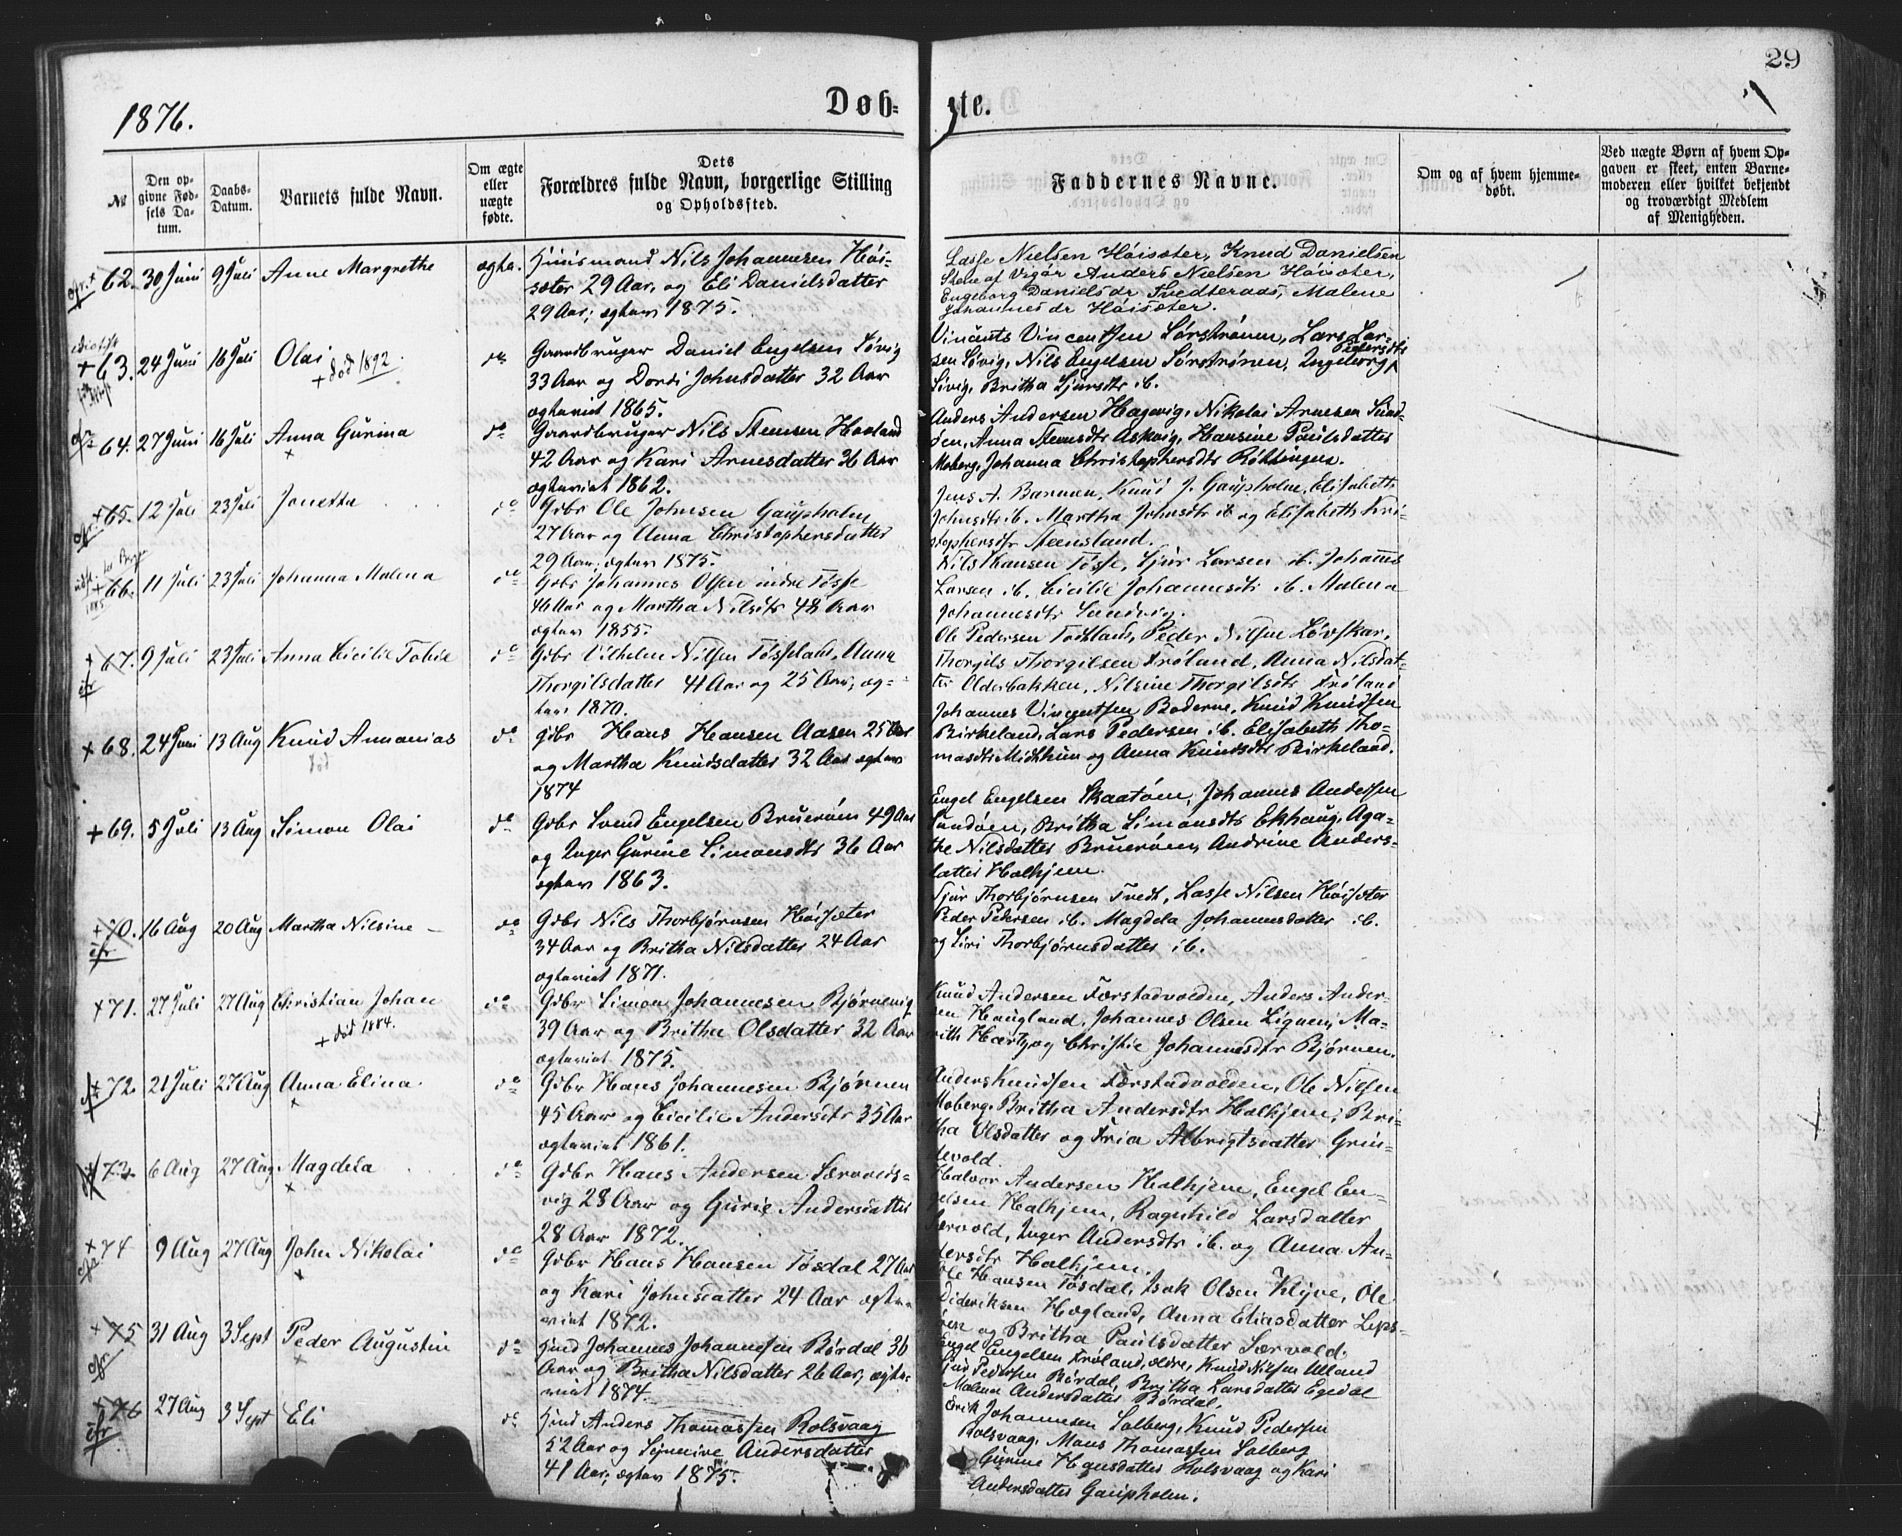 29
1876.
Døb-
te.
№
Den opgivne Fødsels Datum.
Daabs-Datum.
Barnets fulde Navn.
Om ægte eller uægte fødte.
Dets Forældres fulde Navn, borgerlige Stilling og Opholdssted.
Faddernes Navne.
Om og af hvem hjemmedøbt.
Ved uægte Børn af hvem Opgaven er skeet, enten Barnemoderen eller hvilket bekjendt og troværdigt Medlem af Menigheden.
62. 30 Juni 9 Juli Anne Margrethe ægte. Huusmand Nils Johannesen Høi-
sæter 29 Aar, og Eli Danielsdatter
29 Aar; ægtev 1875.
Lasse Nielsen Høisæter, Knud Danielsen
Anders Nielsen Høisæter,
Engeborg Danielsdr Tvedteraas, Malene
Johannesdr Høisæter.
63. 24 Juni 16 Juli Olai do Gaardbruger Daniel Engelsen Søvig
+ død 1892.
33 Aar og Dordi Johnsdatter 32 Aar
ægteviet 1865.
Vincents Vincentsen Sørstrønen, Lars Lar-
sen Søvig, Nils Engelsen Sørstrønen, Ingeborg Pedersdtr
Søvig, Britha Sjursdtr ib.
64. 27 Juni 16 Juli Anna Gurina do Gaardbruger Nils Steensen Havland
42 Aar og Kari Arnesdatter 36 Aar
ægteviet 1862.
Anders Andersen Hagevig, Nikolai Arnesen Sund-
en, Anna Steensdtr Askvig, Hansine Paulsdatter
Moberg, Johanna Christophersdtr Røttingen.
65. 12 Juli 23 Juli Jonetta do Gdbr Ole Johnsen Gaupholm
27 Aar og Anna Christophersdatter
29 Aar; ægtev 1875.
Jens A. Barmen, Knud J. Gaupholm, Elisabeth
Johnsdtr ib. Martha Johnsdtr ib og Elisabeth Kri-
stophersdtr Steensland.
66. 11 Juli 23 Juli Johanna Malena do Gdbr Johannes Olsen indre Tøsse
46 Aar og Martha Nilsdtr 48 Aar
ægtev 1855.
Nils Hansen Tøsse, Sjur Larsen ib. Johannes
Larsen ib. Cicilie Johannesdtr ib. Malena
Johannesdtr Sundvig.
67. 9 Juli 23 Juli Anna Cicilie Tobie do Gdbr Vilhelm Nilsen Tøsseland, Anna
Thorgilsdatter 41 Aar og 25 Aar, æg-
tev 1870.
Ole Pedersen Todtland, Peder Nilsen Løvskar,
Thorgils Thorgilsen Frøland, Anna Nilsdat-
ter Olderbakken, Nilsine Thorgilsdtr Frøland
68. 24 Juni 13 Aug Knud Annanias do Gdbr Hans Hansen Aasen 25 Aar
død
og Martha Knudsdatter 32 Aar ægtev
1874
Johannes Vincentsen Boderne, Knud Knudsen
Birkeland, Lars Pedersen ib. Elisabeth Tho-
masdtr Midthun og Anna Knudsdtr Birkeland.
69. 5 Juli 13 Aug Simon Olai do Gdbr Svend Engelsen Bruerøen 49 Aar
og Inger Gurine Simonsdtr 36 Aar
ægtev 1863.
Engel Engelsen Skaatøen, Johannes Andersen
Sundøen, Britha Simonsdtr Ekhaug, Aga-
the Nilsdatter Bruerøen, Andrine Anders-
datter Halhjem.
70. 16 Aug 20 Aug Martha Nilsine do Gdbr Nils Thorbjørnsen Høisæter
34 Aar og Britha Nilsdatter 24 Aar
ægteviet 1871.
Sjur Thorbjørnsen Tvedt, Lasse Nilsen Høisæter
Peder Pedersen ib. Magdela Johannesdatter ib.
og Siri Thorbjørnsdatter ib.
71. 27 Juli 27 Aug Christian Johan do Gdbr Simon Johannesen Bjørnevig
+ død 1884.
39 Aar og Britha Olsdatter 32 Aar
ægteviet 1875.
Knud Andersen Førstadvolden, Anders Ander-
sen Haugland, Johannes Olsen Liqueni, Ma-
rith Hærtz og Christie Johannesdtr Bjørnen.
72. 21 Juli 27 Aug Anna Elina do Gdbr Hans Johannesen Bjørnen
45 Aar og Cicilie Andersdtr 35 Aar
ægteviet 1861.
Anders Knudsen Førstadvolden, Ole Nilsen
Moberg, Britha Andersdtr Halhjem, Bri-
tha Olsdatter og Fria Albrigtsdatter Grin-
devold.
73 6 Aug 27 Aug Magdela do Gdbr Hans Andersen Særvolds-
vig 28 Aar og Gurie Andersdatter
28 Aar 1872.
Halvor Andersen Halhjem, Engel En-
gelsen Halhjem, Ragnhild Larsdatter
Særvold, Inger Andersdtr ib. og Anna An-
dersdtr Halhjem.
74 9 Aug 27 Aug John Nikolai do Gdbr Hans Hansen Tøsdal 27 Aar
og Kari Johnsdatter 24 Aar ægte-
viet 1872.
Ole Hansen Tøsdal, Isak Olsen Klyve, Ole
Dideriksen Hægland, Anna Eliasdatter Leps-
øen og Britha Paulsdatter Særvold.
75 31 Aug 3 Sept Peder Augustin do Huud Johannes Johannesen Børdal 36
Aar og Britha Nilsdatter 26 Aar, ægte-
viet 1874.
Engel Engelsen Frøland, ældre, Knud Nilsen Ulland
Pedersen Børdal, Britha Larsdatter Egedal
Malena Andersdatter Børdal.
76 27 Aug 3 Sept Eli do Huud Anders Thomassen Rolsvaag
52 Aar og Synneve Andersdatter
41 Aar; ægtev 1875.
Erik Johannesen Solberg, Knud Pedersen
Rolsvaag, Mons Thomassen Solberg
Gurine Hansdatter Rolsvaag og Kari
Andersdatter Gaupholm.